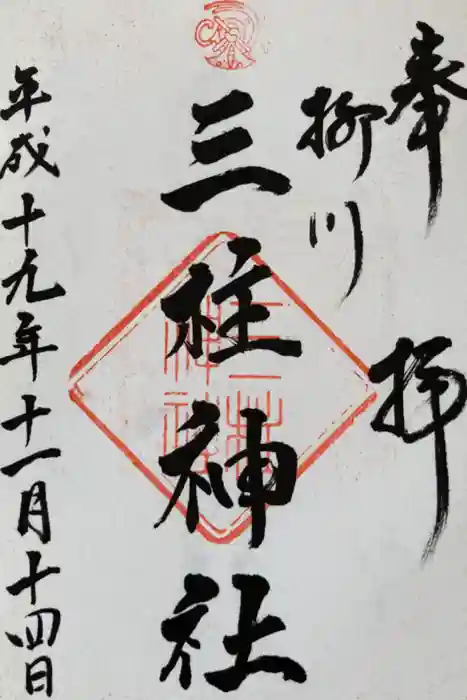 奉拝
柳川
三柱神社
三柱
神社
平成十九年十一月十四日